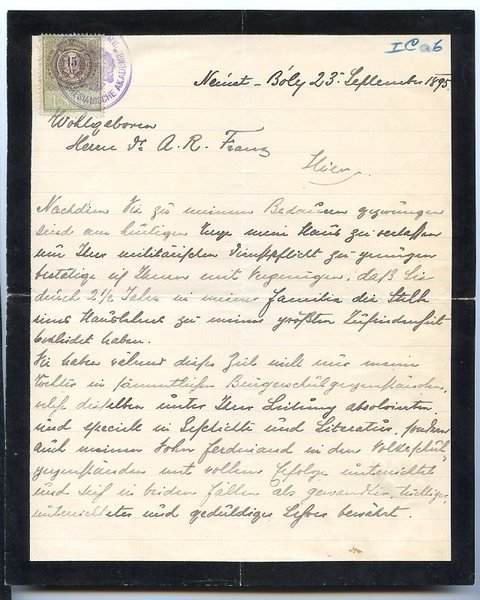 15
ORIENTALISCHE AKADEMIE
I C a 6
Német-Bóly 23t September 1895
Wohlgeboren
Herrn Dr A. R. Franz
Hier.
Nachdem Sie zu meinem Bedauern gezwungen
sind am heutigen Tage mein Haus zu verlassen
um Ihrer militärischen Dienstpflicht zu genügen
bestätige ich Ihnen mit Vergnügen, daß Sie
durch 2½ Jahre in meiner Familie die Stelle
eines Hauslehrers zu meiner größten Zufriedenheit
bekleidet haben.
Sie haben während dieser Zeit nicht nur meine
Töchter in sämmtlichen Bürgerschulgegenständen,
welche dieselben unter Ihrer Leitung absolvierten
und speciell in Geschichte und Literatur, sondern
auch meinen Sohn Ferdinand in den Volksschul-
gegenständen mit vollem Erfolge unterrichtet
und sich in beiden Fällen als gewandter, tüchtiger,
unterrichteter und geduldiger Lehrer bewährt.